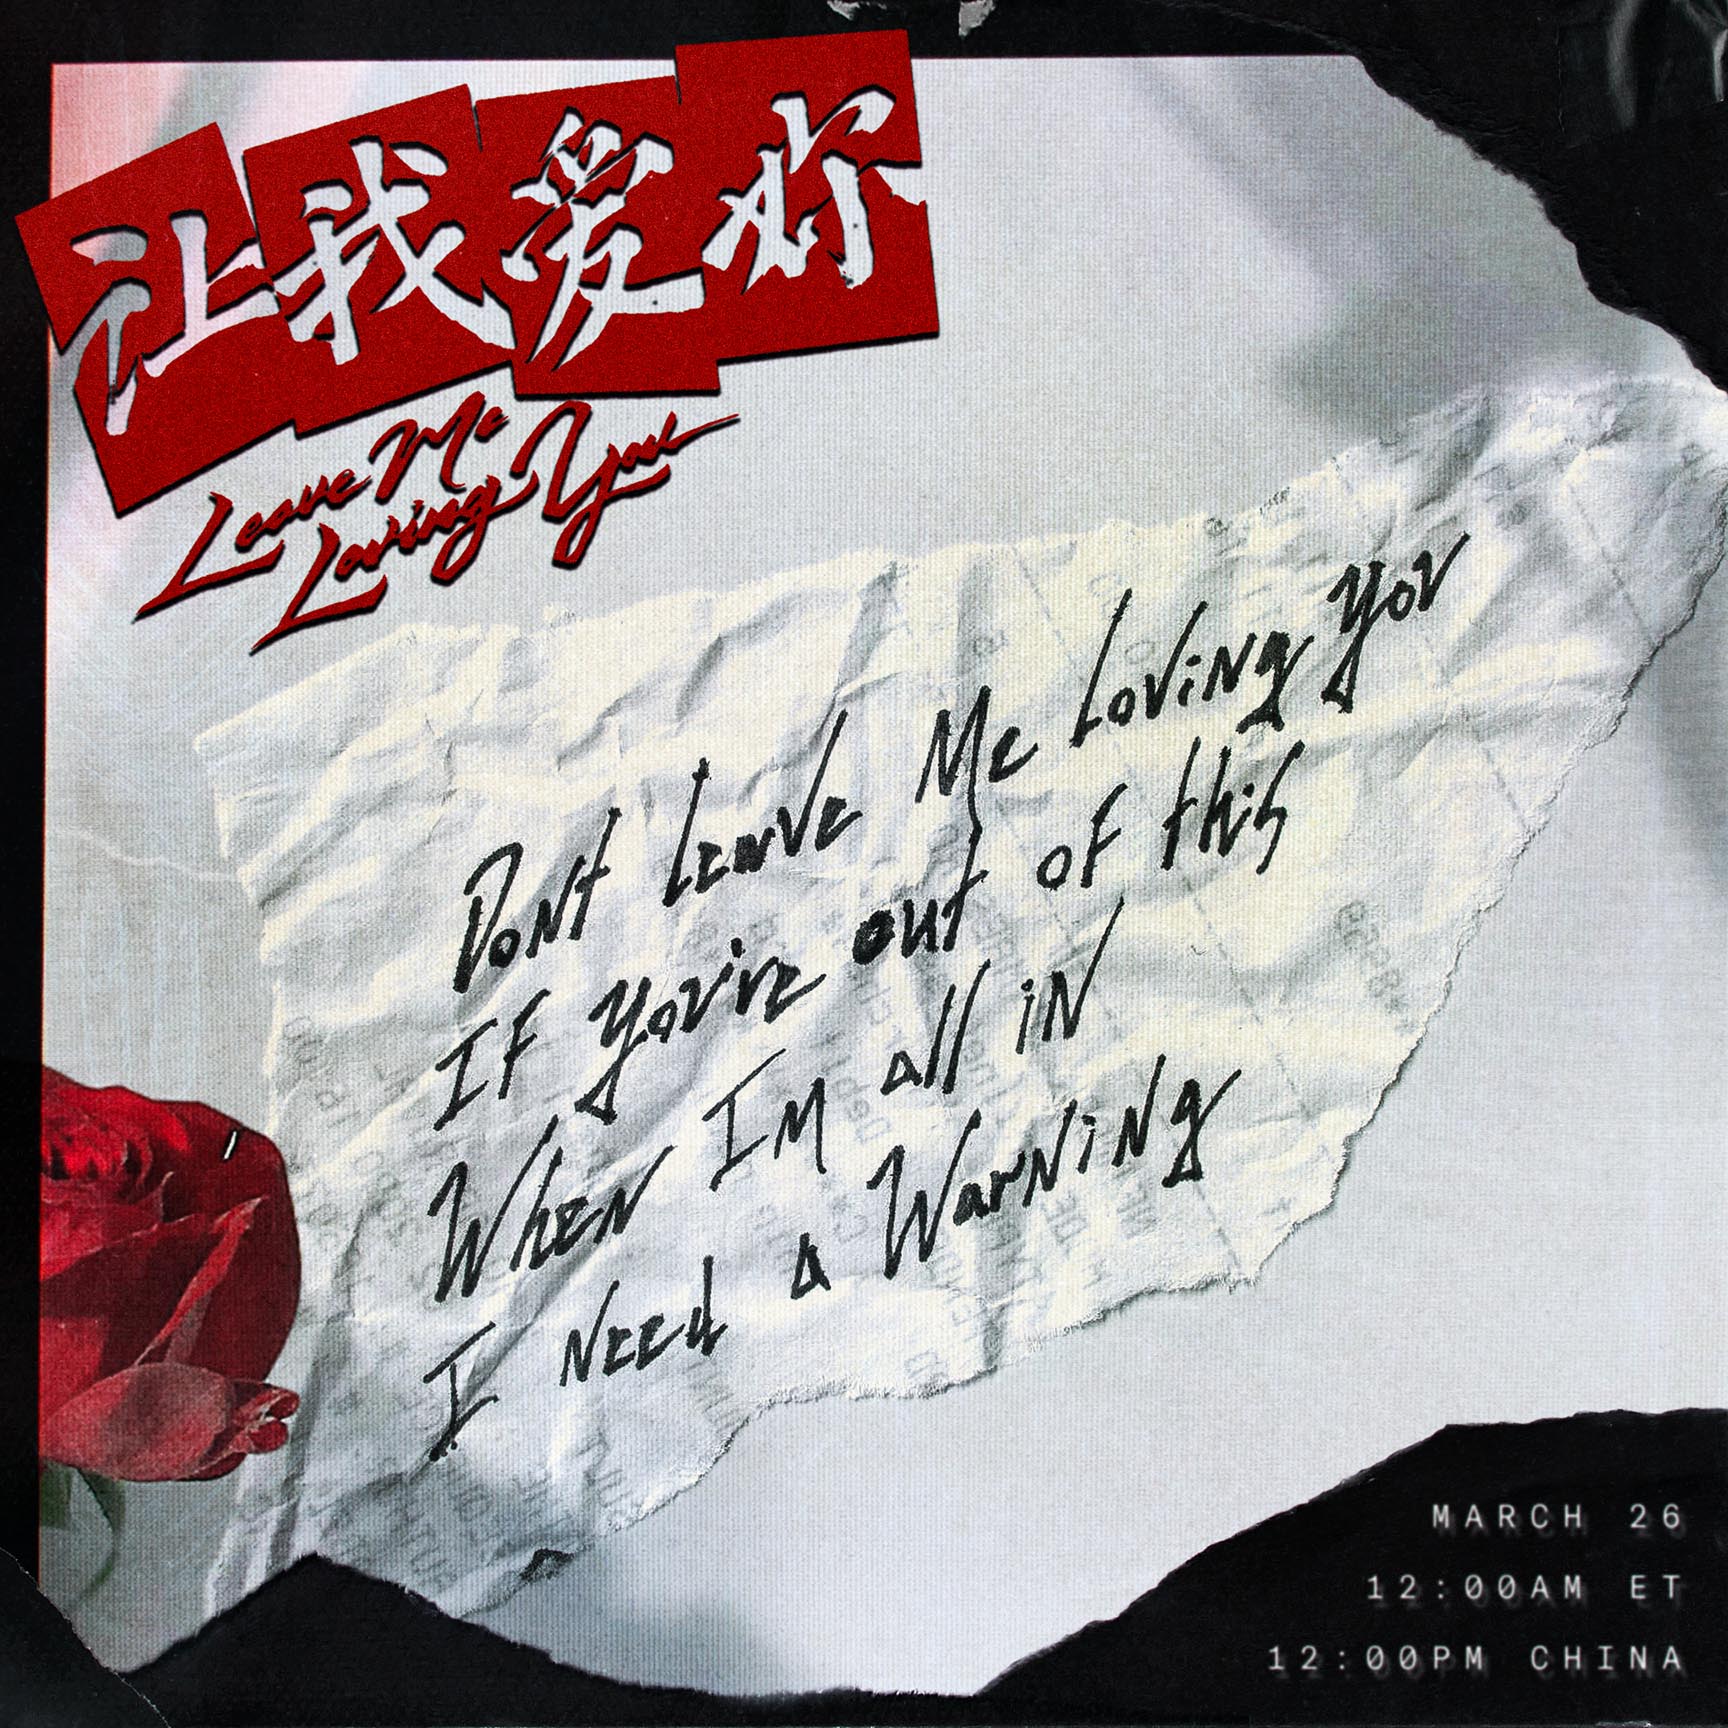 让我爱你
Leave Me
Loving You
Dont leave Me loving you
If you're out of this
When Im all in
I need a Warning
MARCH 26
12:00AM ET
12:00PM CHINA